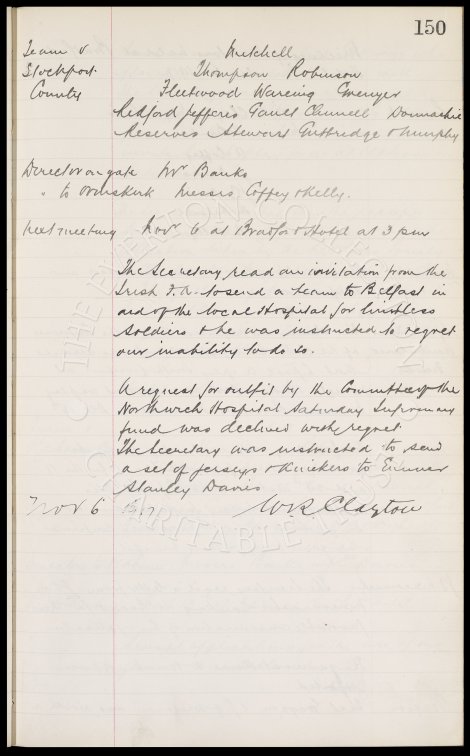 150
Team v Mitchell
Stockport Thompson Robinson
County Fleetwood Wareing Grenyer
Kedford Jefferis Gault Clennell Donnachie
Reserves Stewart Guttridge & Murphy
Director on gate Mr Banks
" to Ormskirk Messrs Coffey & Kelly.
next meeting Novr 6 at Bradford Hotel at 3 pm
The Secretary read an invitation from the
Irish F.A. to send a team to Belfast in
aid of the local Hospital for limbless
Soldiers & he was instructed to regret
our inability to do so.
A request for outfit by the Committee of the
Northwich Hospital Saturday Infirmary
fund was declined with regret.
The Secretary was instructed to send
a set of jerseys & knickers to
Stanley Davis
Nov 6 1917 W R Clayton
THE EVERTON COLLECTION
CHARITABLE TRUST